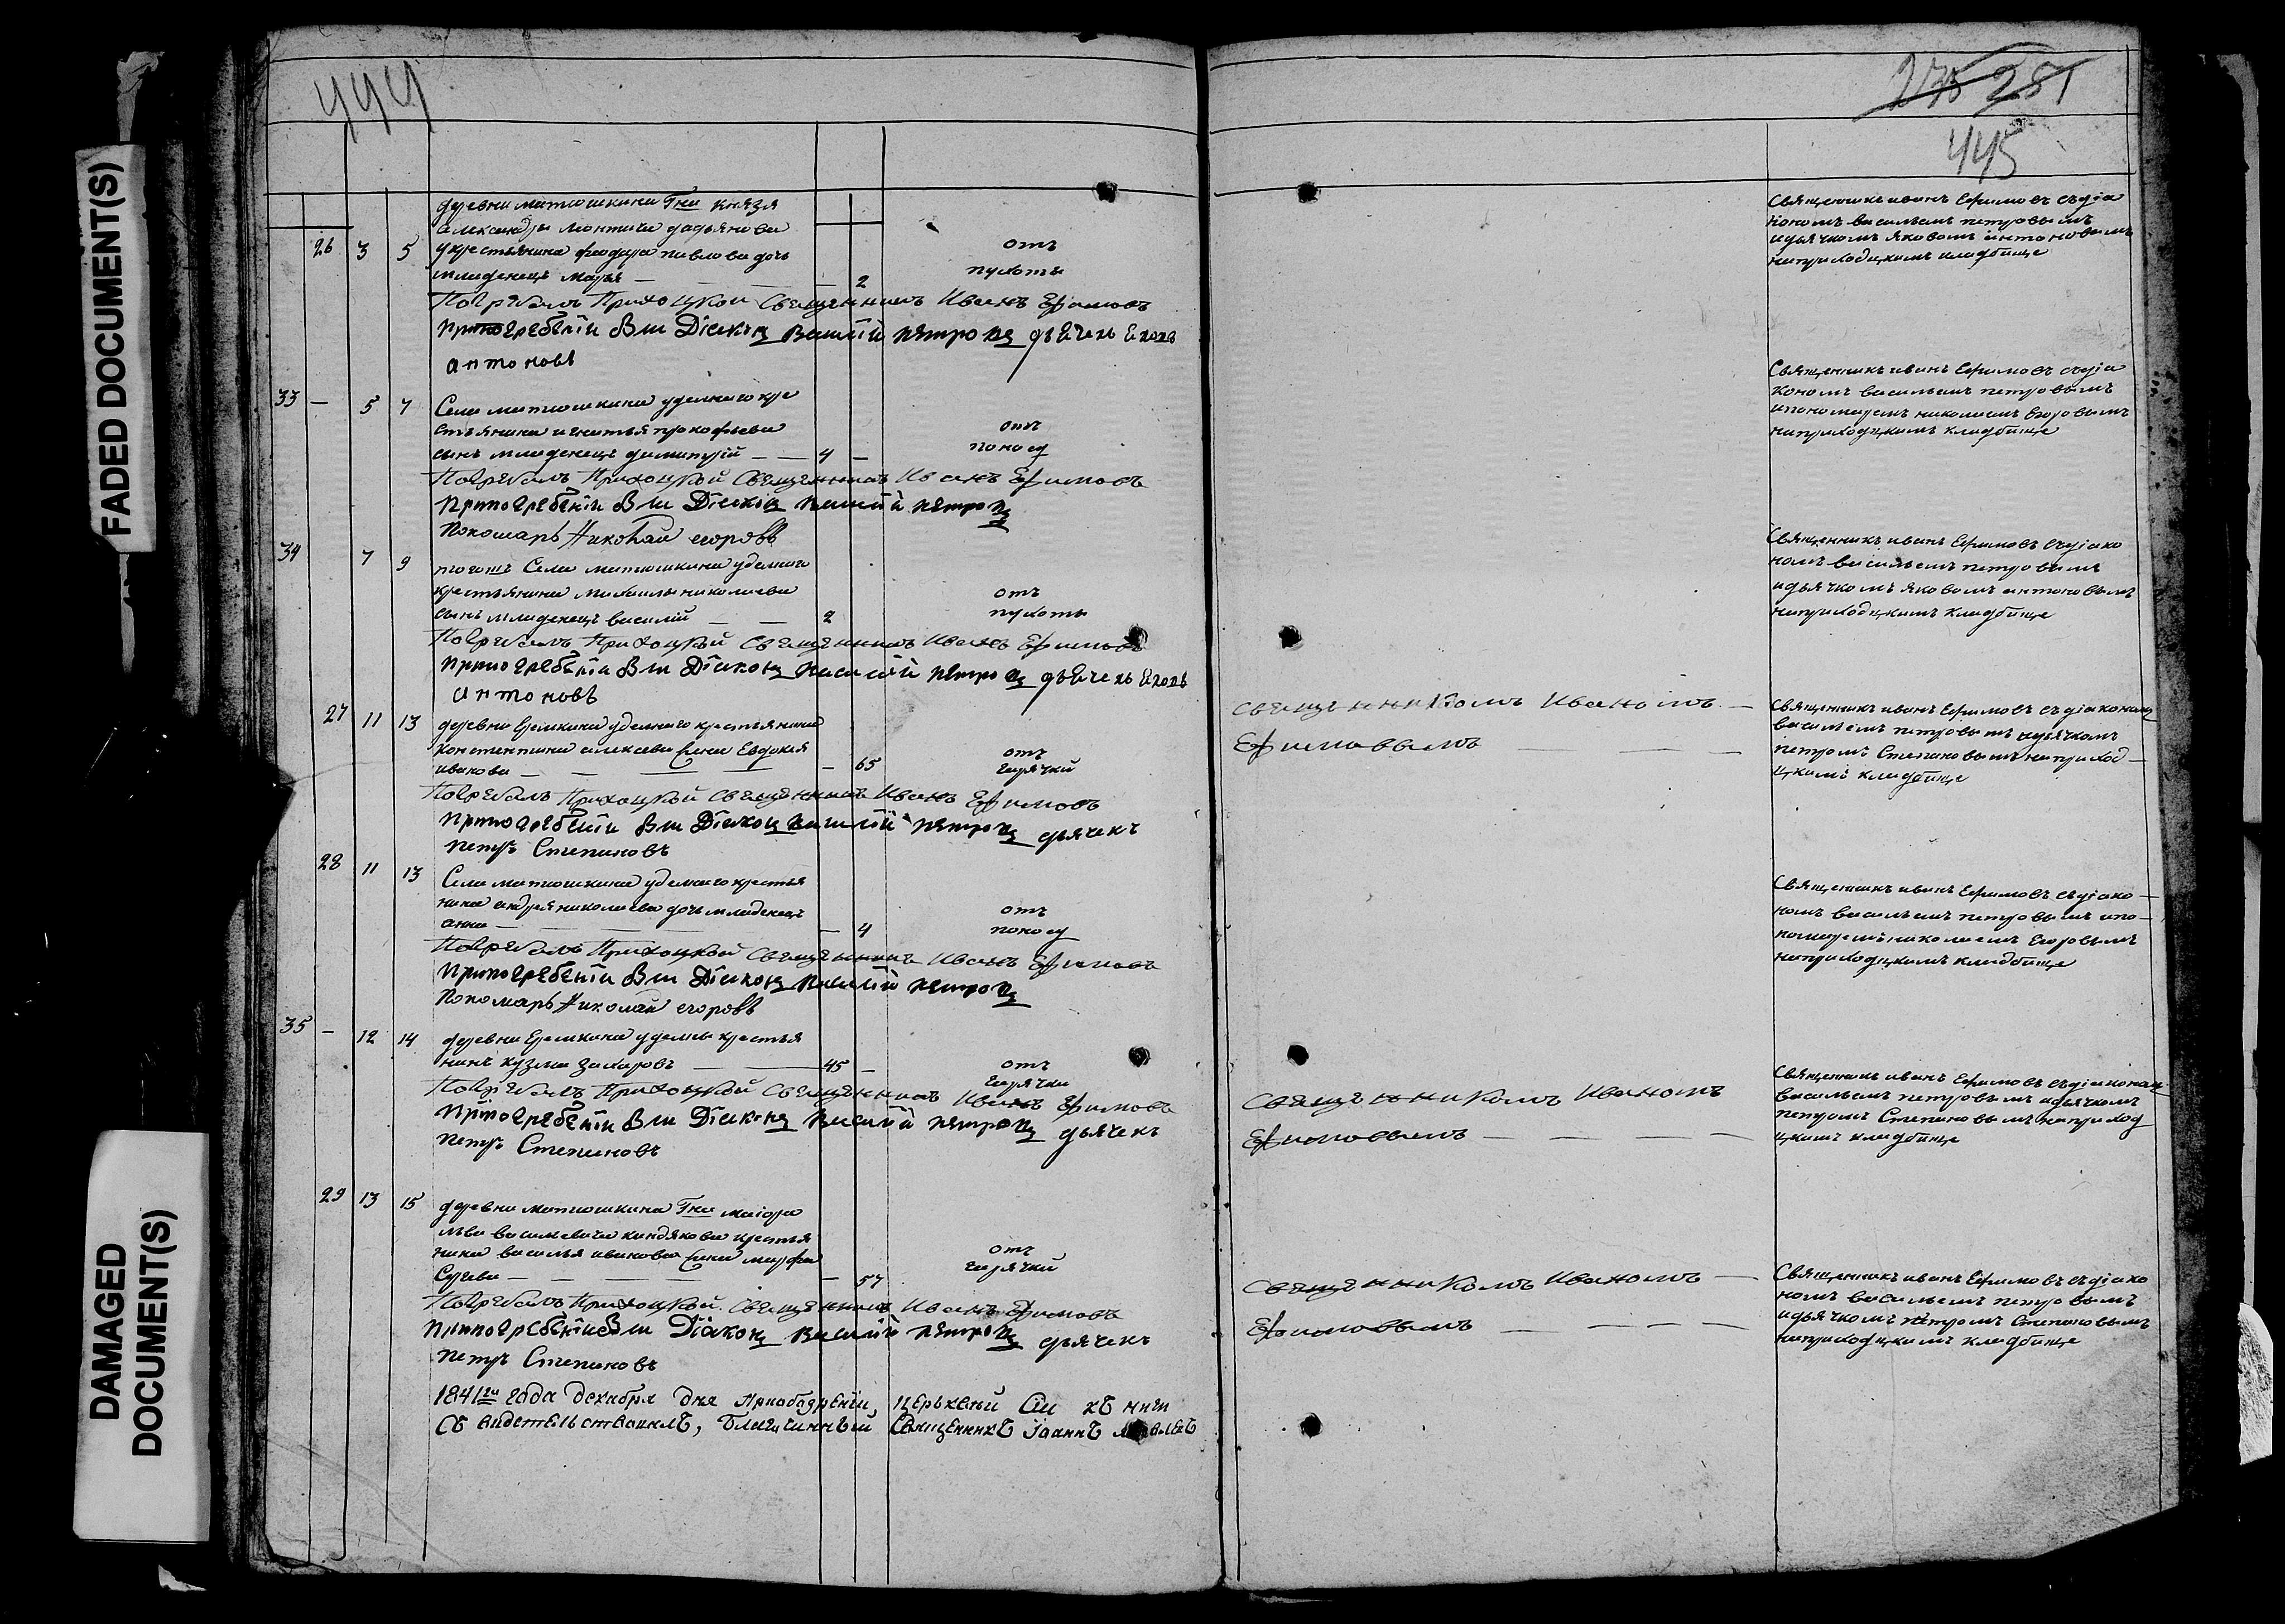 FADED DOCUMENT(S)
DAMAGED DOCUMENT(S)
444
275 251
445
деревни матюшкина Гна князя
александра
26 3 5 крестьянина феодора павлова дочь
младенецъ марья — 2
отъ
Погребалъ Приходцкой Священникъ Иванъ Ефимовъ
При погребении был Дiаконъ Василiй петровъ дьячекъ Яковъ
антоновъ
Священникъ иванъ Ефимовъ съ дiа
кономъ васильемъ петровымъ
и дьячкомъ яковомъ антоновымъ
на приходцкимъ кладбище
33 — 5 7 Села матюшкина уделнаго кре
стьянина игнатья прокофьева
сынъ младенецъ димитрiй — — 4 —
отъ
поносу
Погребалъ Приходцкой Священникъ Иванъ Ефимовъ
При погребении был Дiаконъ Василiй петровъ
Пономарь Николай егоровъ
Священникъ иванъ Ефимовъ съ дiа
кономъ васильемъ петровымъ
и пономаремъ николаемъ Егоровымъ
на приходцкимъ кладбище
34 7 9 тогожъ Села матюшкина уделнаго
крестьянина михаилы николаева
сынъ младенецъ василiй — — 2
отъ
Погребалъ Приходцкой Священникъ Иванъ Ефимовъ
При погребении был Дiаконъ Василiй петровъ дьячекъ Яковъ
антоновъ
Священникъ иванъ Ефимовъ съ дiако
номъ васильемъ петровымъ
и дьячкомъ яковомъ антоновымъ
на приходцкимъ кладбище
27 11 13 деревни Еремкина уделнаго крестьянина
константина алексеева жена Евдокея
иванова — — — — — 65
отъ
гарячки
Погребалъ Приходцкой Священникъ Иванъ Ефимовъ
При погребении был Дiаконъ Василiй петровъ дьячекъ
петръ Степановъ
Священникомъ Иваномъ —
Ефимовымъ — — —
Священникъ иванъ Ефимовъ съ дiакономъ
васильемъ петровымъ и дьячкомъ
петромъ Степановымъ на приход—
цкимъ кладбище
28 11 13 Села матюшкина уделнаго крестья
нина андрея николаева дочь младенецъ
анна — — 4
отъ
поносу
Погребалъ Приходцкой Священникъ Иванъ Ефимовъ
При погребении был Дiаконъ Василiй петровъ
Пономарь Николай егоровъ
Священникъ иванъ Ефимовъ съ дiако—
номъ васильемъ петровымъ и по—
номаремъ николаемъ Егоровымъ
на приходцкимъ кладбище
35 — 12 14 деревни Еремкина уделны крестья
нинъ кузма захаровъ — — 45 —
отъ
гарячки
Погребалъ Приходцкой Священникъ Иванъ Ефимовъ
При погребении был Дiаконъ Василiй петровъ дьячекъ
петръ Степановъ
Священникомъ Иваномъ
Ефимовымъ — — — —
Священникъ иванъ Ефимовъ съ дiакономъ
васильемъ петровымъ и дьячкомъ
петромъ Степановымъ на приход
цкимъ кладбище
29 13 15 деревни матюшкина Гна маiора
льва васильевича киндякова крестья
нина василья иванова жена марфа
— — — — — 57
отъ
гарячки
Погребалъ Приходцкой Священникъ Иванъ Ефимовъ
При погребении был Дiаконъ Василiй петровъ дьячекъ
петръ Степановъ
Священникомъ Иваномъ —
Ефимовымъ — — — —
Священникъ иванъ Ефимовъ съ дiако
номъ васильемъ петровымъ
и дьячкомъ петромъ Степановымъ
на приходцкимъ кладбище
1841го года декабря дня церьквей Сiи книги
Свидетельствовалъ, Благочинный Священникъ Iоаннъ